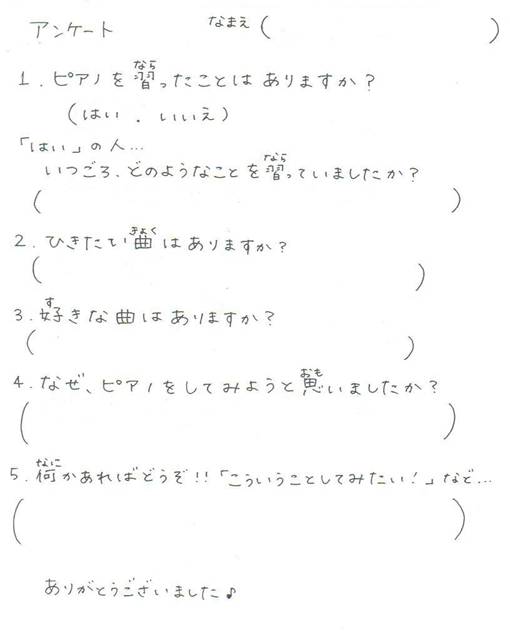 アンケート　なまえ (　　　)
1. ピアノを習ったことはありますか?
(はい . いいえ)
「はい」の人...
いつごろ、どのようなことを習っていましたか?
(　　　)
2. ひきたい曲はありますか?
(　　　)
3. 好きな曲はありますか?
(　　　)
4. なぜ、ピアノをしてみようと思いましたか?
(　　　)
5. 何かあればどうぞ!!「こういうことしてみたい!」など...
(　　　)
ありがとうございました♪